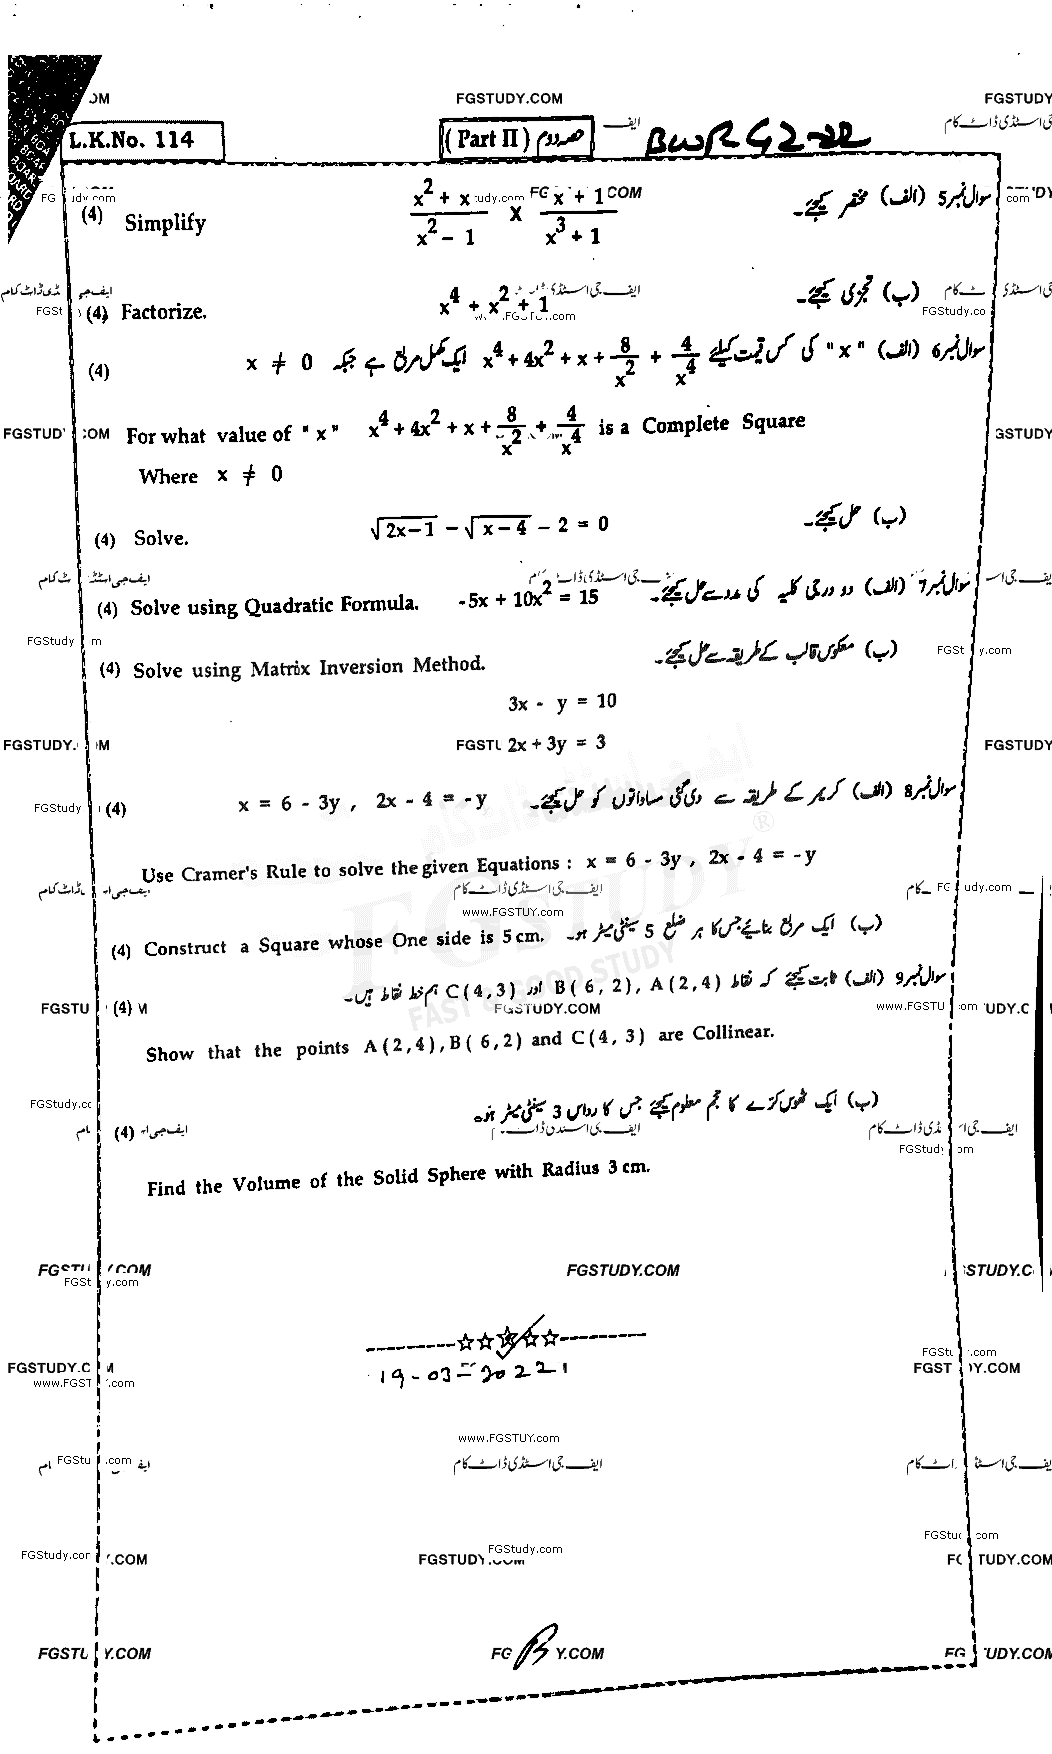 FGSTUDY.COM FGSTUDY
L.K.No. 114 ( Part II ) حصہ دوم BWR G2-22
سوال نمبر 5 (الف) مختصر کیجئے۔
(4) Simplify x² + x / x² - 1 × x + 1 / x³ + 1
(ب) تجزی کیجئے۔
(4) Factorize. x⁴ + x² + 1
سوال نمبر 6 (الف) "x" کی کس قیمت کیلئے x⁴ + 4x² + x + 8/x² + 4/x⁴ ایک مکمل مربع ہے جبکہ x ≠ 0 (4)
For what value of "x" x⁴ + 4x² + x + 8/x² + 4/x⁴ is a Complete Square
Where x ≠ 0
(ب) حل کیجئے۔
(4) Solve. √2x-1 - √x-4 - 2 = 0
سوال نمبر 7 (الف) دو درجی کلیہ کی مدد سے حل کیجئے۔
(4) Solve using Quadratic Formula. -5x + 10x² = 15
(ب) معکوس قالب کے طریقہ سے حل کیجئے۔
(4) Solve using Matrix Inversion Method.
3x - y = 10
FGSTUDY.COM 2x + 3y = 3 FGSTUDY
سوال نمبر 8 (الف) کریمر کے طریقہ سے دی گئی مساداتوں کو حل کیجئے۔ x = 6 - 3y , 2x - 4 = -y (4)
Use Cramer's Rule to solve the given Equations : x = 6 - 3y , 2x - 4 = -y
ایف جی اسٹڈی ڈاٹ کام
www.FGSTUY.com
(ب) ایک مربع بنائیے جس کا ہر ضلع 5 سینٹی میٹر ہو۔
(4) Construct a Square whose One side is 5 cm.
سوال نمبر 9 (الف) ثابت کیجئے کہ نقاط A(2,4) ,B(6,2) اور C(4,3) ہم خط نقاط ہیں۔ (4)
FGSTUDY
FAST & GOOD STUDY
FGSTUDY.COM
Show that the points A(2,4),B(6,2) and C(4,3) are Collinear.
(ب) ایک ٹھوس کرے کا حجم معلوم کیجئے جس کا رداس 3 سینٹی میٹر ہو۔
(4)
Find the Volume of the Solid Sphere with Radius 3 cm.
FGSTUDY.COM
☆☆☆☆☆
19-03-20221
FGSTUDY.COM
www.FGSTUY.com
ایف جی اسٹڈی ڈاٹ کام
FGStudy.com
FGSTUDY.COM